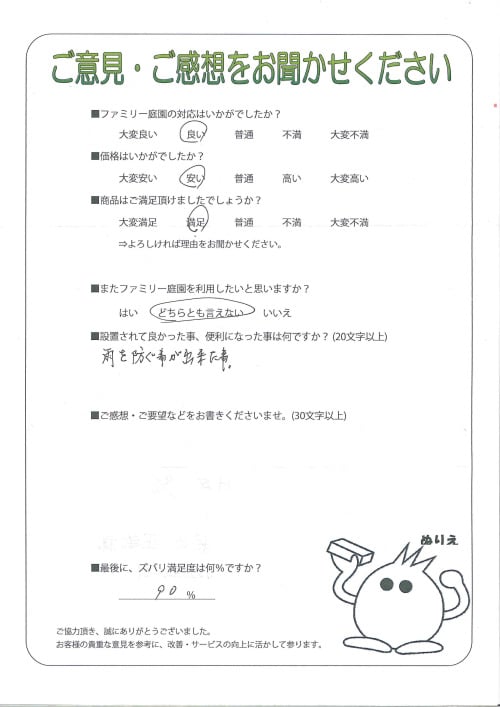 ご意見・ご感想をお聞かせください
■ファミリー庭園の対応はいかがでしたか？
大変良い 良い 普通 不満 大変不満
■価格はいかがでしたか？
大変安い 安い 普通 高い 大変高い
■商品はご満足頂けましたでしょうか？
大変満足 満足 普通 不満 大変不満
⇒よろしければ理由をお聞かせください。
■またファミリー庭園を利用したいと思いますか？
はい どちらとも言えない いいえ
■設置されて良かった事、便利になった事は何ですか？(20文字以上)
雨を防ぐ事が出来た事。
■ご感想・ご要望などをお書きくださいませ。(30文字以上)
ぬりえ
■最後に、ズバリ満足度は何％ですか？
90 %
ご協力頂き、誠にありがとうございました。
お客様の貴重な意見を参考に、改善・サービスの向上に活かして参ります。